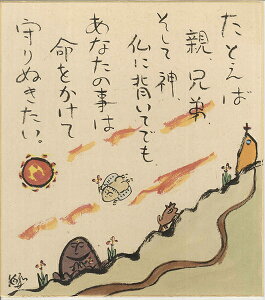 たとえば
親、兄弟、
そして神、
仏に背いてでも
あなたの事は
命をかけて
守りぬきたい。